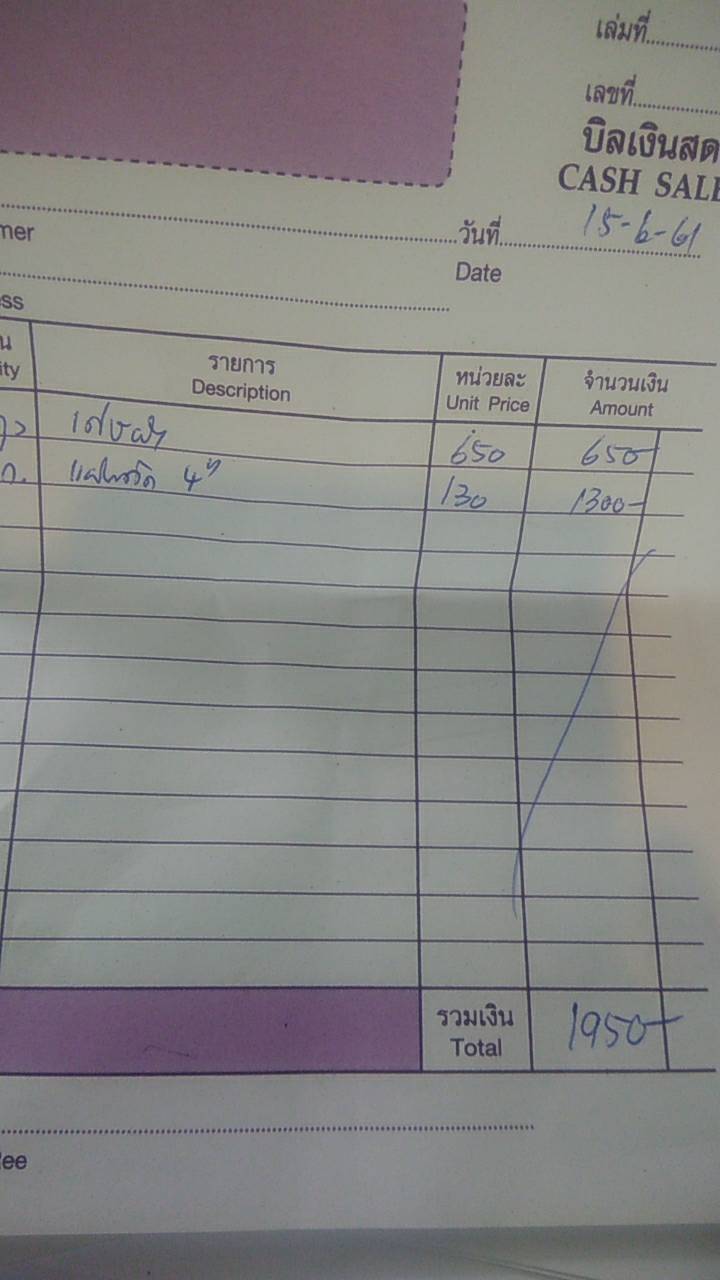 เล่มที่
เลขที่
บิลเงินสด
CASH SALE
mer
วันที่ 15-6-61
Date
ess
น
ity
รายการ
Description
หน่วยละ
Unit Price
จำนวนเงิน
Amount
เศษผ้า 650 650-
ก. 4" 130 1300-
รวมเงิน 1950-
Total
ee